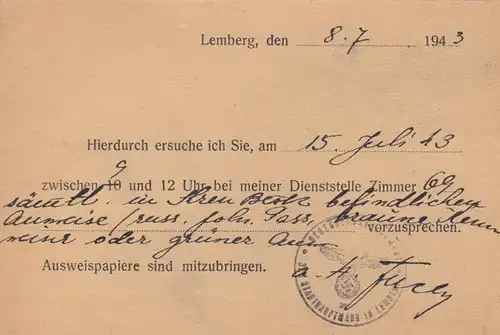 Lemberg, den 8.7 1943
Hierdurch ersuche ich Sie, am 15. Juli 43
9
zwischen 10 und 12 Uhr bei meiner Dienststelle Zimmer 69
sämtl. in Ihrem Besitz befindlichen
Ausweise (russ. poln. Pass, braune Kenn
vorzusprechen.
oder grüner
Ausweispapiere sind mitzubringen.
STADTHAUPTMANN IN LEMBERG